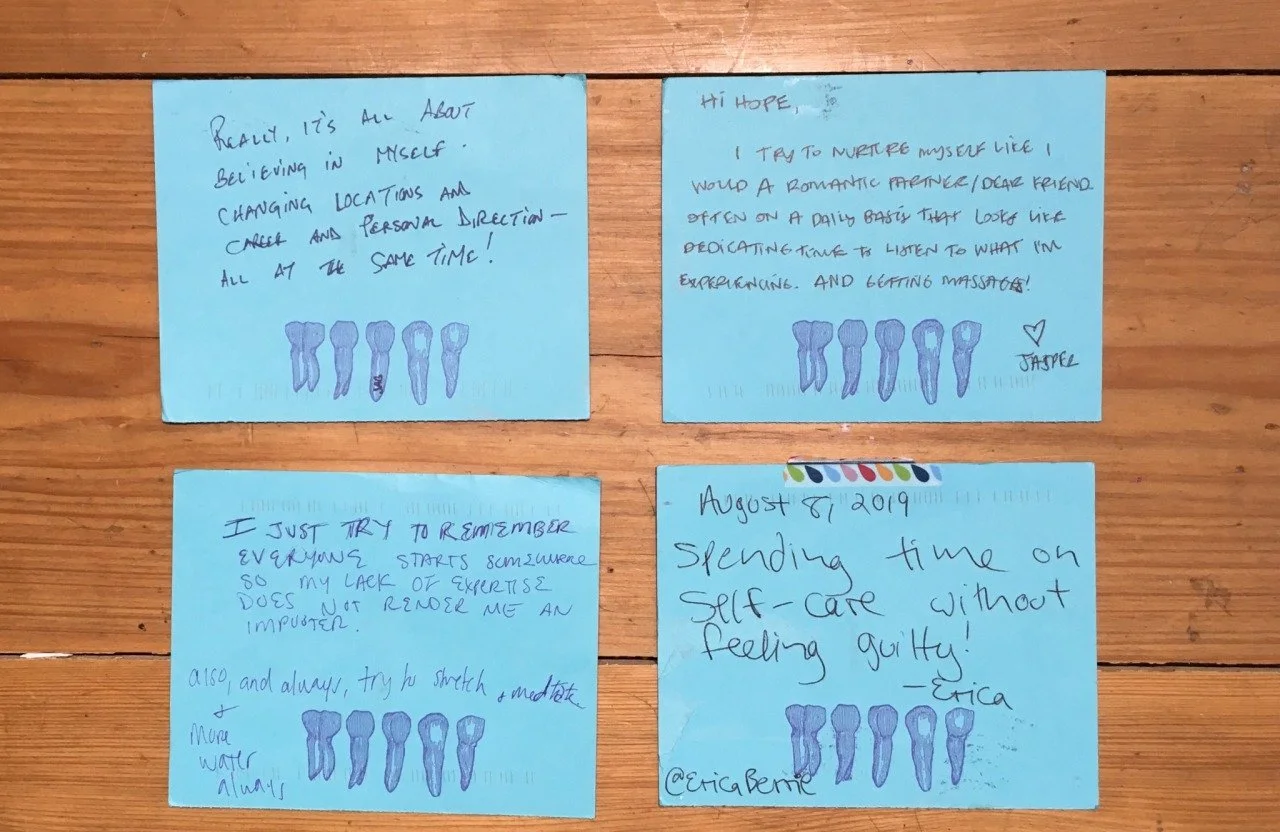 REALLY, IT'S ALL ABOUT
BELIEVING IN MYSELF.
CHANGING LOCATIONS AND
CAREER AND PERSONAL DIRECTION—
ALL AT THE SAME TIME!
HI HOPE,
I TRY TO NURTURE MYSELF LIKE I
WOULD A ROMANTIC PARTNER/DEAR FRIEND
OFTEN ON A DAILY BASIS THAT LOOKS LIKE
DEDICATING TIME TO LISTEN TO WHAT I'M
EXPERIENCING. AND GETTING MASSAGES!
♡
JASPER
I JUST TRY TO REMEMBER
EVERYONE STARTS SOMEWHERE
SO MY LACK OF EXPERTISE
DOES NOT RENDER ME AN
IMPOSTER.
also, and always, try to stretch + meditate
+
More
water
always
August 8, 2019
Spending time on
Self-care without
feeling guilty!
-Erica
@EricaBerrie